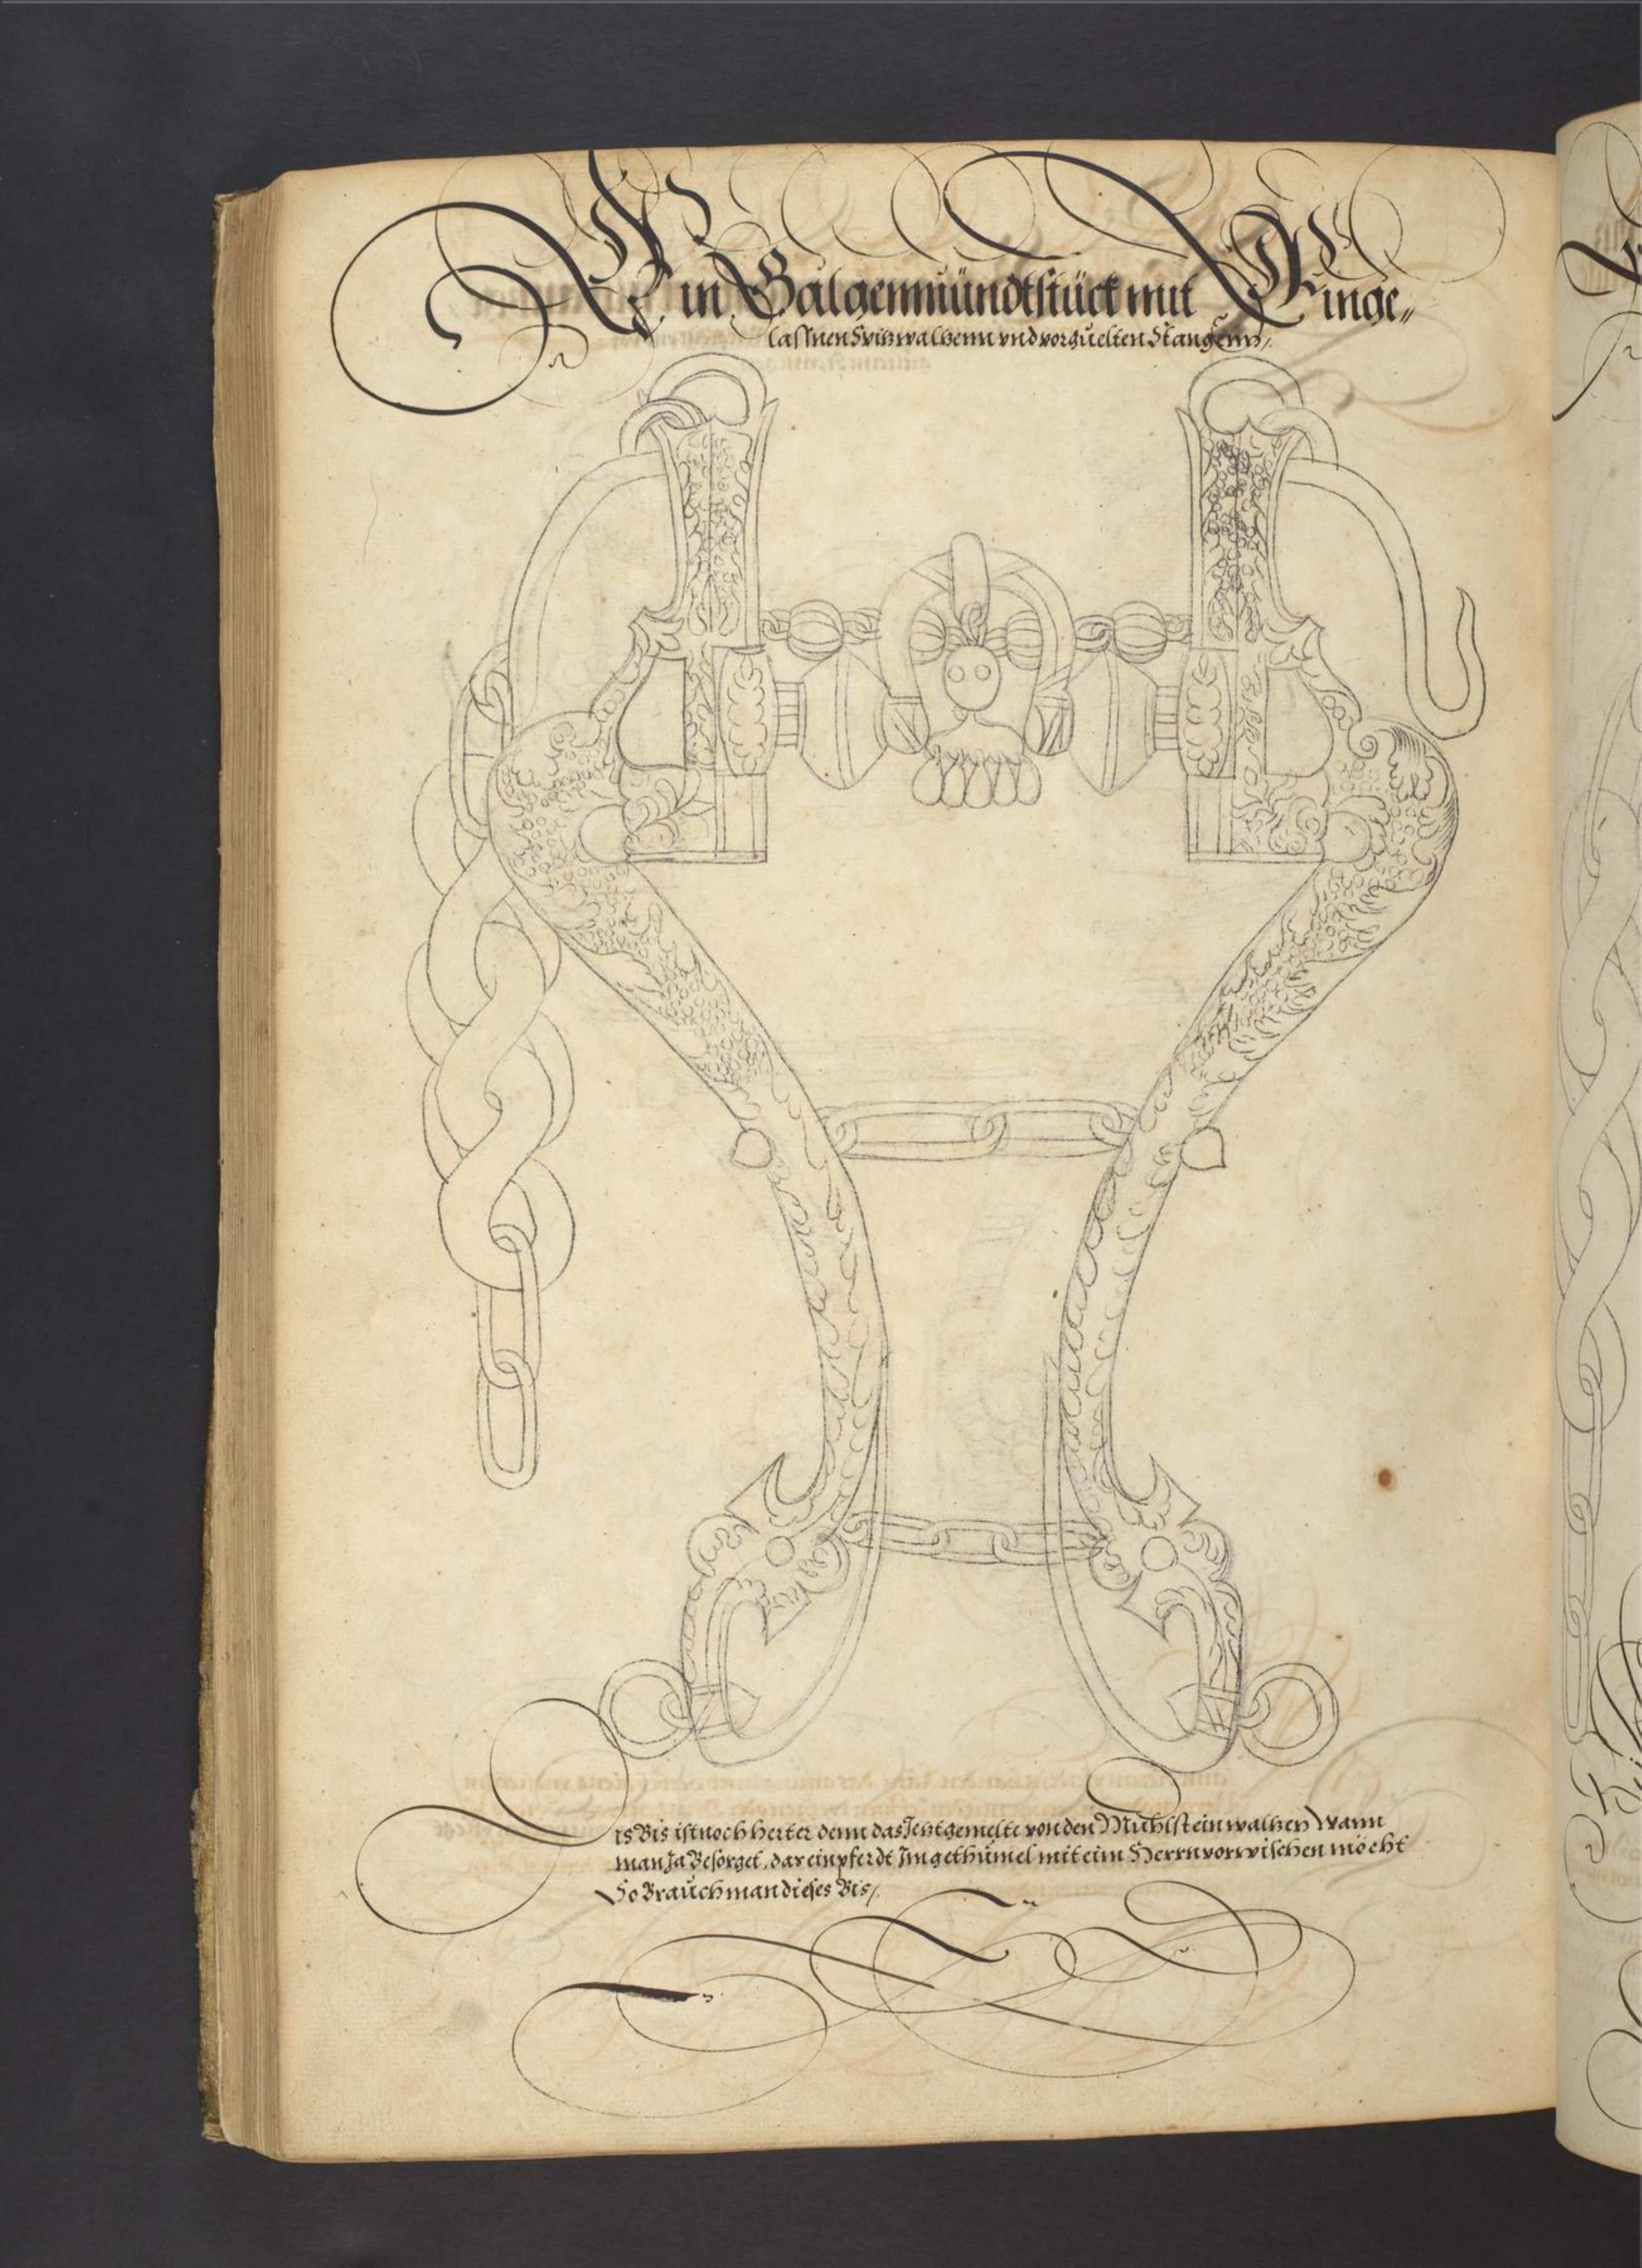 Ein Galgenmündtstück mit Einge„
laſſnen Spitzwaltzenn vnd vorzuelten Stangenn/.
is Bis iſt noch herter denn das Jetztgemelte von den Mühlſteinwaltzen Wann
man Ja Beſorget, dar ein pferdt Im gethümel mit eim Herrn vorwiſchen möcht
So Brauch man dieſes Bis/.